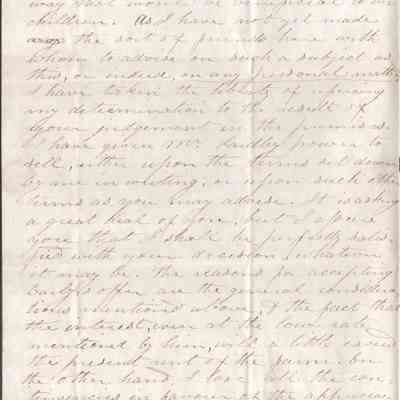 way that would be beneficial to our
children. As I have not yet made
the sort of friends here with
whom to advise on such a subject as
this, or indeed, on any personal matter
I have taken the liberty of referring
my determination to the result of
your judgement in the premises.
I have given Mr. Dudley power to
sell, either upon the terms set down
by me in writing, or upon such other
terms as you may advise. It is asking
a great deal of you, but I assure
you that I shall be perfectly satis-
fied with your decision, whatever
it may be. The reasons for accepting
offer are the general considera-
tions mentioned above, & the fact that
the interest, even at the low rate
mentioned by him, will a little exceed
the present rent of the farm. On
the other hand, I lose all the con-
tingencies in favour of the